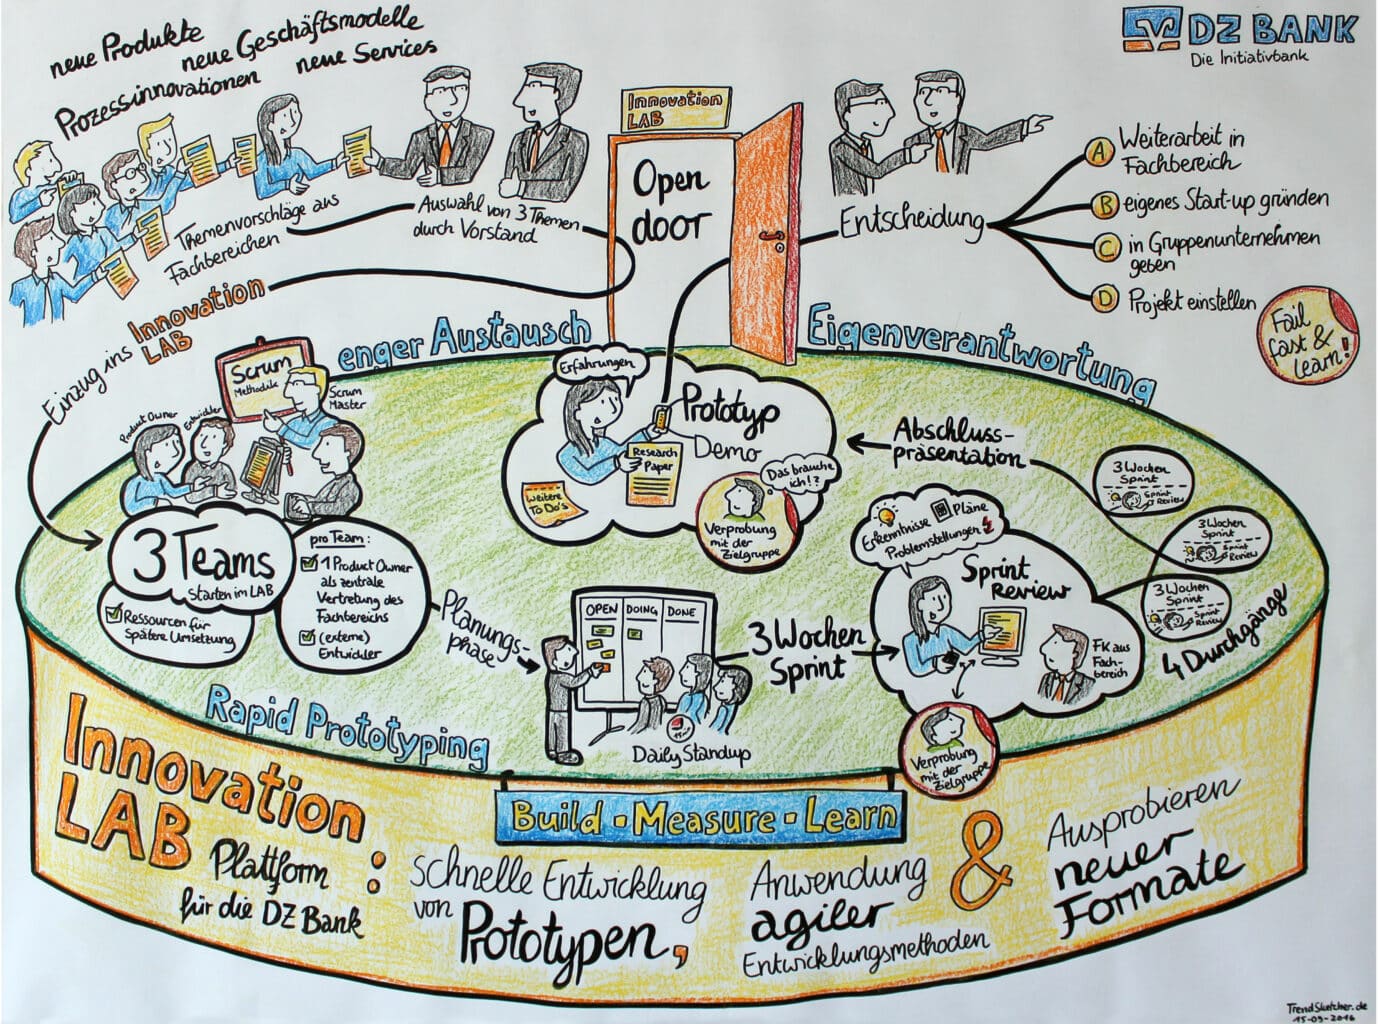 neue Produkte
neue Geschäftsmodelle
Prozessinnovationen
neue Services
DZ BANK
Die Initiativbank
Themenvorschläge aus
Fachbereichen
Auswahl von 3 Themen
durch Vorstand
Innovation
LAB
Open
door
Entscheidung
A Weiterarbeit in
Fachbereich
B eigenes Start-up gründen
C in Gruppenunternehmen
geben
D Projekt einstellen
Fail
fast &
Learn!
Einzug ins Innovation
LAB
enger Austausch
Eigenverantwortung
Scrum
Methodik
Scrum
Master
Product Owner
Entwickler
3 Teams
Starten im LAB
Ressourcen für
spätere Umsetzung
pro Team:
1 Product Owner
als zentrale
Vertretung des
Fachbereichs
(externe)
Entwickler
Planungs-
phase
OPEN DOING DONE
Daily Standup
3 Wochen
Sprint
Erkenntnisse Pläne
Problemstellungen
Sprint
Review
FK aus
Fach-
bereich
Verprobung
mit der
Zielgruppe
3 Wochen
Sprint
Sprint
Review
3 Wochen
Sprint
Sprint
Review
3 Wochen
Sprint
Sprint
Review
4 Durchgänge
Abschluss-
präsentation
Erfahrungen
Prototyp
Demo
Research
Paper
Weitere
To Do's
Das brauche
ich!?
Verprobung
mit der
Zielgruppe
Rapid Prototyping
Build • Measure • Learn
Innovation
LAB:
Plattform
für die DZ Bank
schnelle Entwicklung
von Prototypen,
Anwendung
agiler
Entwicklungsmethoden
&
Ausprobieren
neuer
Formate
TrendSketcher.de
15-09-2016